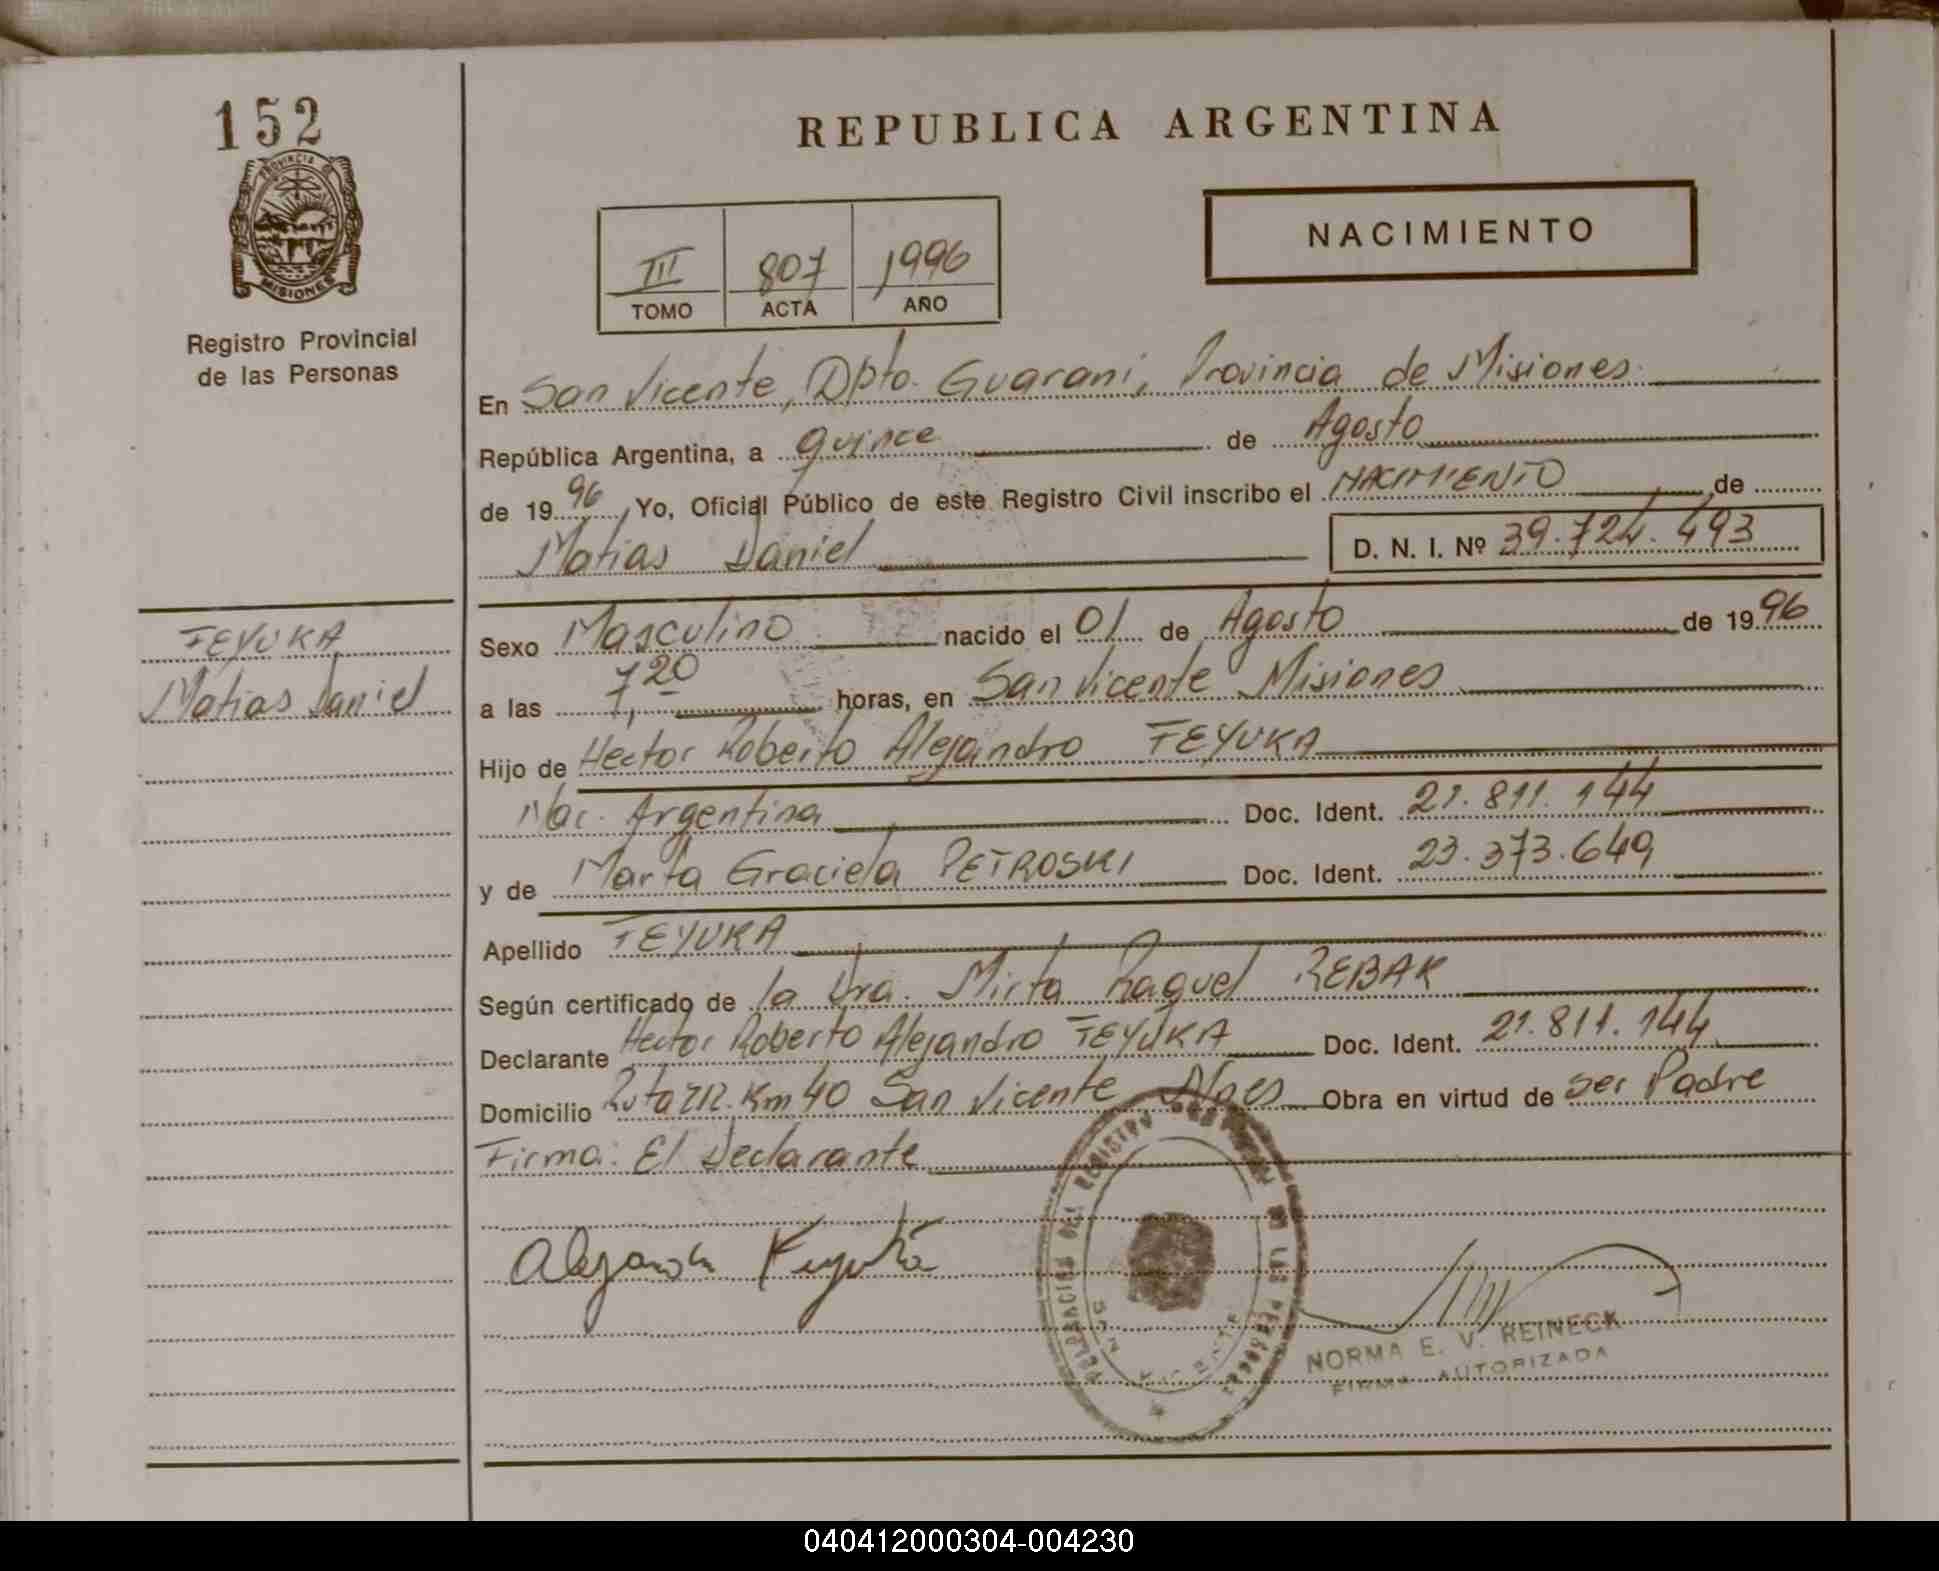 152
PROVINCIA DE
MISIONES
Registro Provincial
de las Personas
REPUBLICA ARGENTINA
III 807 1996
TOMO ACTA AÑO
NACIMIENTO
En San Vicente, Dpto. Guarani, Provincia de Misiones
República Argentina, a quince de Agosto
de 1996, Yo, Oficial Público de este Registro Civil inscribo el NACIMIENTO de
Matias Daniel D. N. I. Nº 39.724.493
FEYUKA
Matias Daniel
Sexo Masculino nacido el 01 de Agosto de 1996
a las 7,20 horas, en San Vicente Misiones
Hijo de Hector Roberto Alejandro FEYUKA
Nac. Argentina Doc. Ident. 21.811.144
y de Marta Graciela PETROSKI Doc. Ident. 23.373.649
Apellido FEYUKA
Según certificado de la Dra. Mirta Raquel REBAK
Declarante Hector Roberto Alejandro FEYUKA Doc. Ident. 21.811.144
Domicilio Ruta 212. Km 40 San Vicente Mnes Obra en virtud de ser Padre
Firma: El Declarante
DELEGACION DEL REGISTRO DE LAS PERSONAS
SAN VICENTE
NORMA E. V. REINECK
FIRMA AUTORIZADA
040412000304-004230